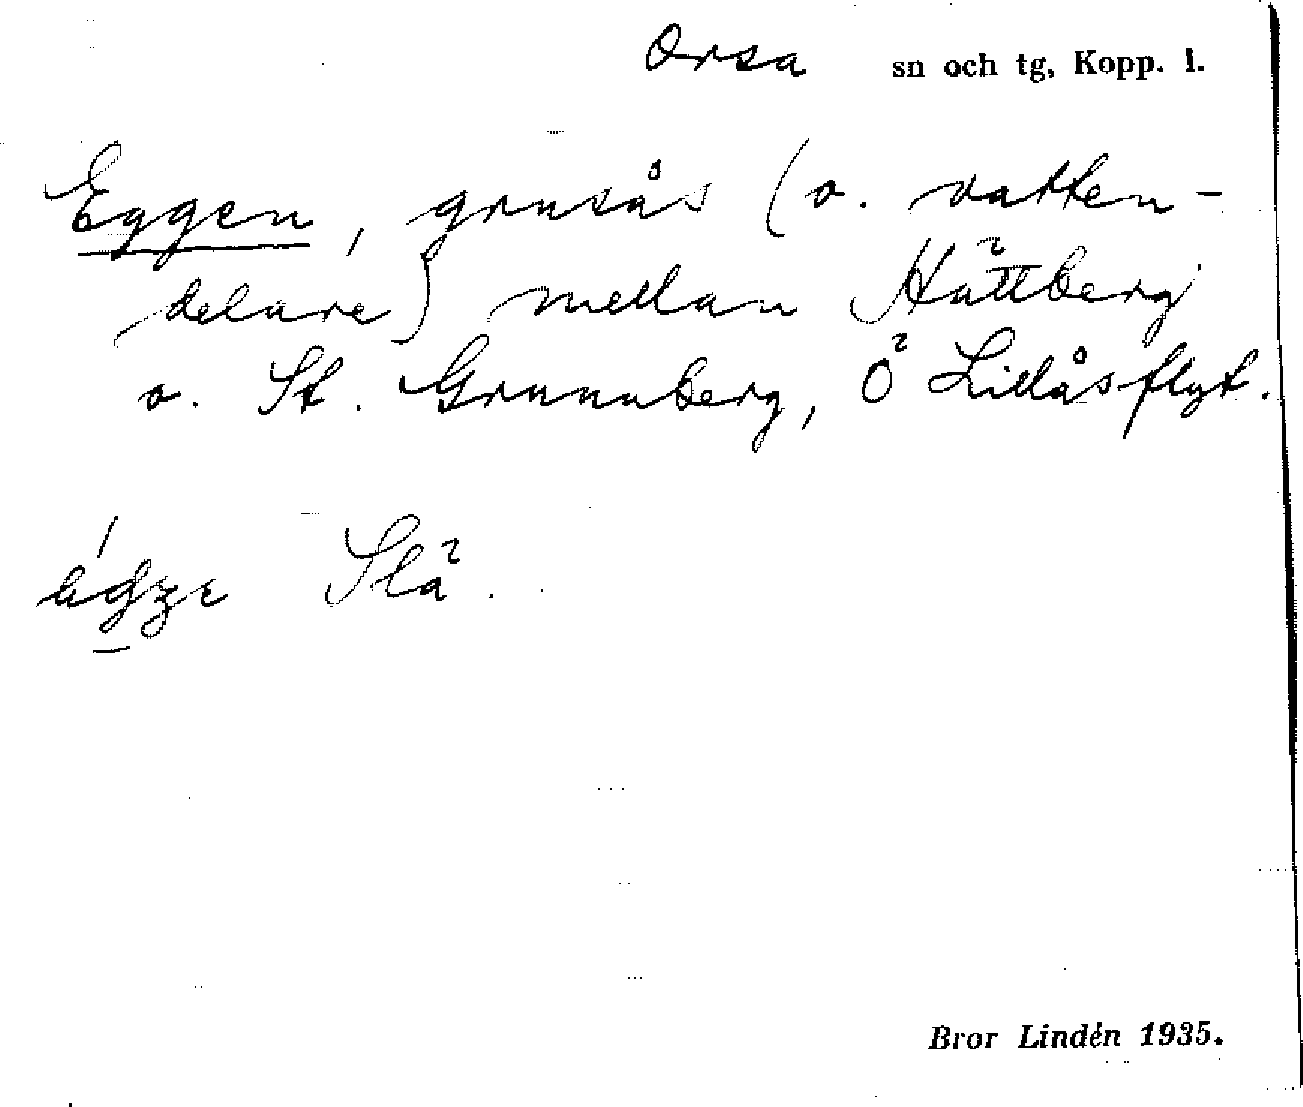 Orsa sn och tg, Kopp. l.
Eggen, grusås (o. vatten-
delare) mellan Hättberg
o. St. Grunuberg, Ö Lillåsflyt.
Slä.
Bror Lindén 1935.